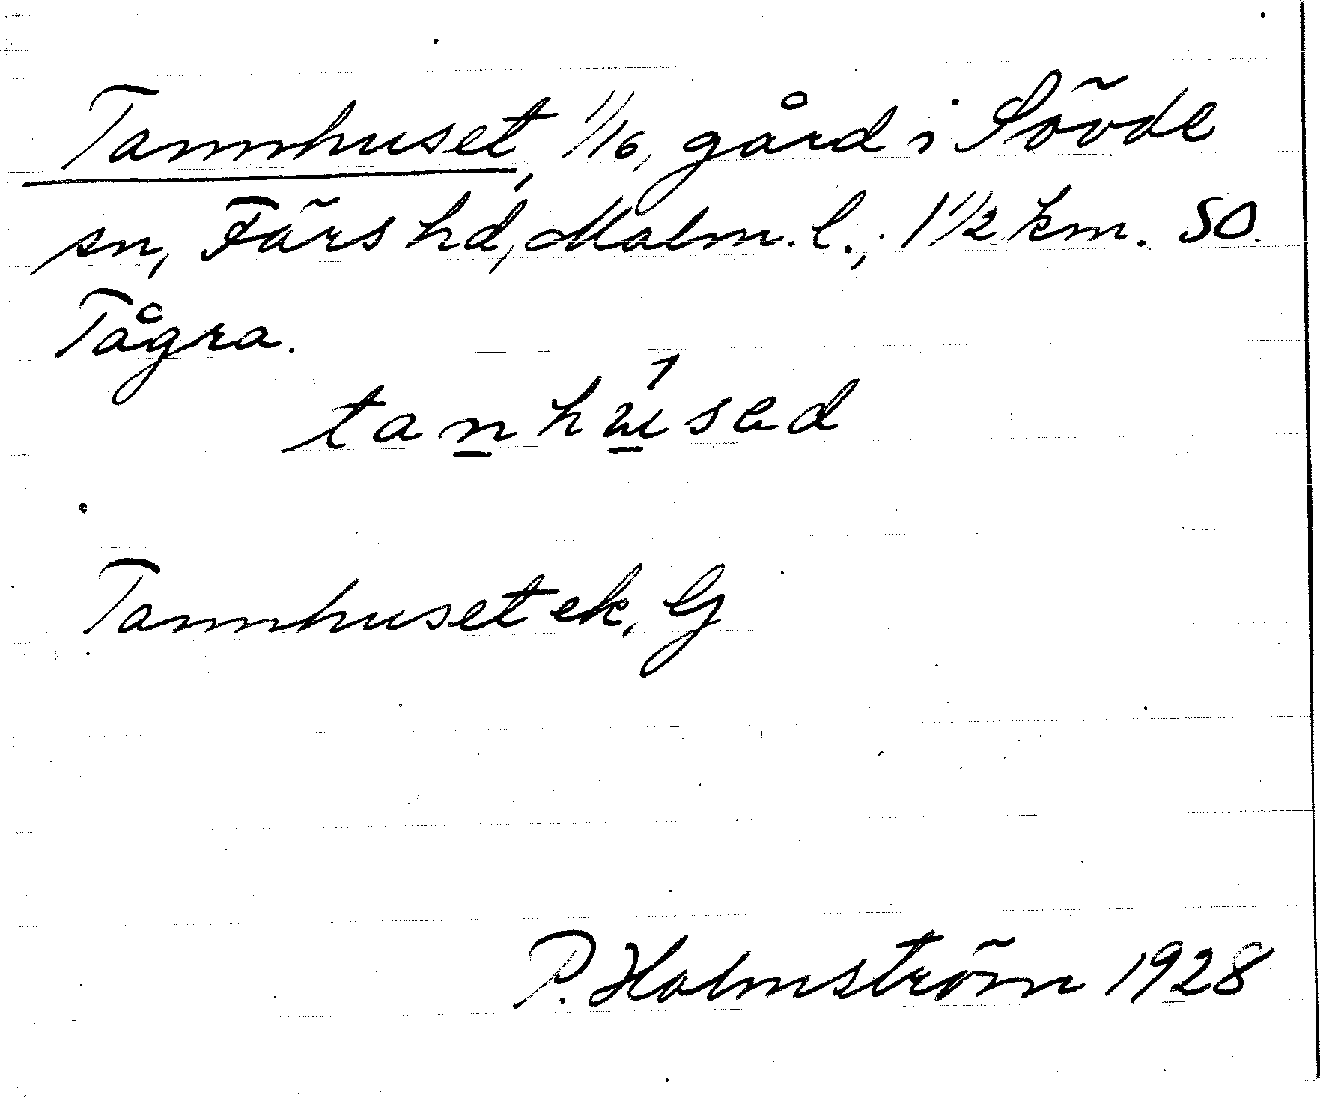 Tannhuset, 1/16, gård i Sövde
sn, Färs hd, Malm. l., 1 1/2 km. SO.
Tågra.
tanhúsad
Tannhuset ek, G
P. Holmström 1928